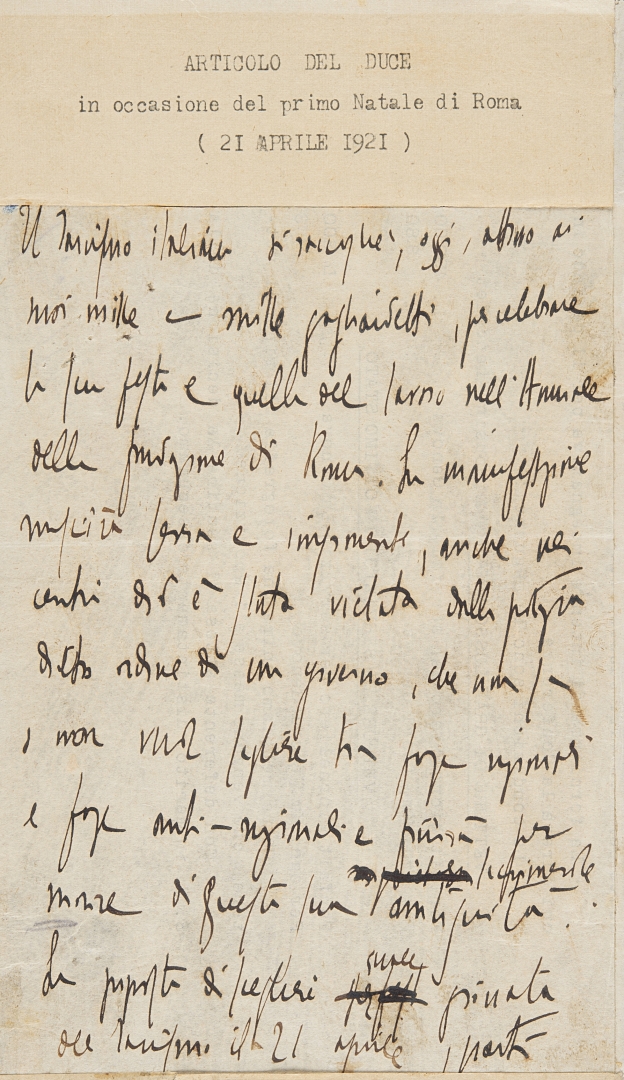 ARTICOLO DEL DUCE
in occasione del primo Natale di Roma
( 21 APRILE 1921 )
Il Fascismo italiano si raccoglie, oggi, attorno ai
suoi mille e mille gagliardetti, per celebrare
la sua festa e quella del lavoro nell'Annuale
della fondazione di Roma. La manifestazione
riuscirà seria e imponente, anche nei
centri dove è stata vietata dalla polizia
dietro ordine di un governo, che non sa
o non vuol scegliere tra forze nazionali
e forze anti-nazionali e finirà per
morire di questa sua ambiguità.
La proposta di scegliere come giornata
del Fascismo il 21 aprile, partì